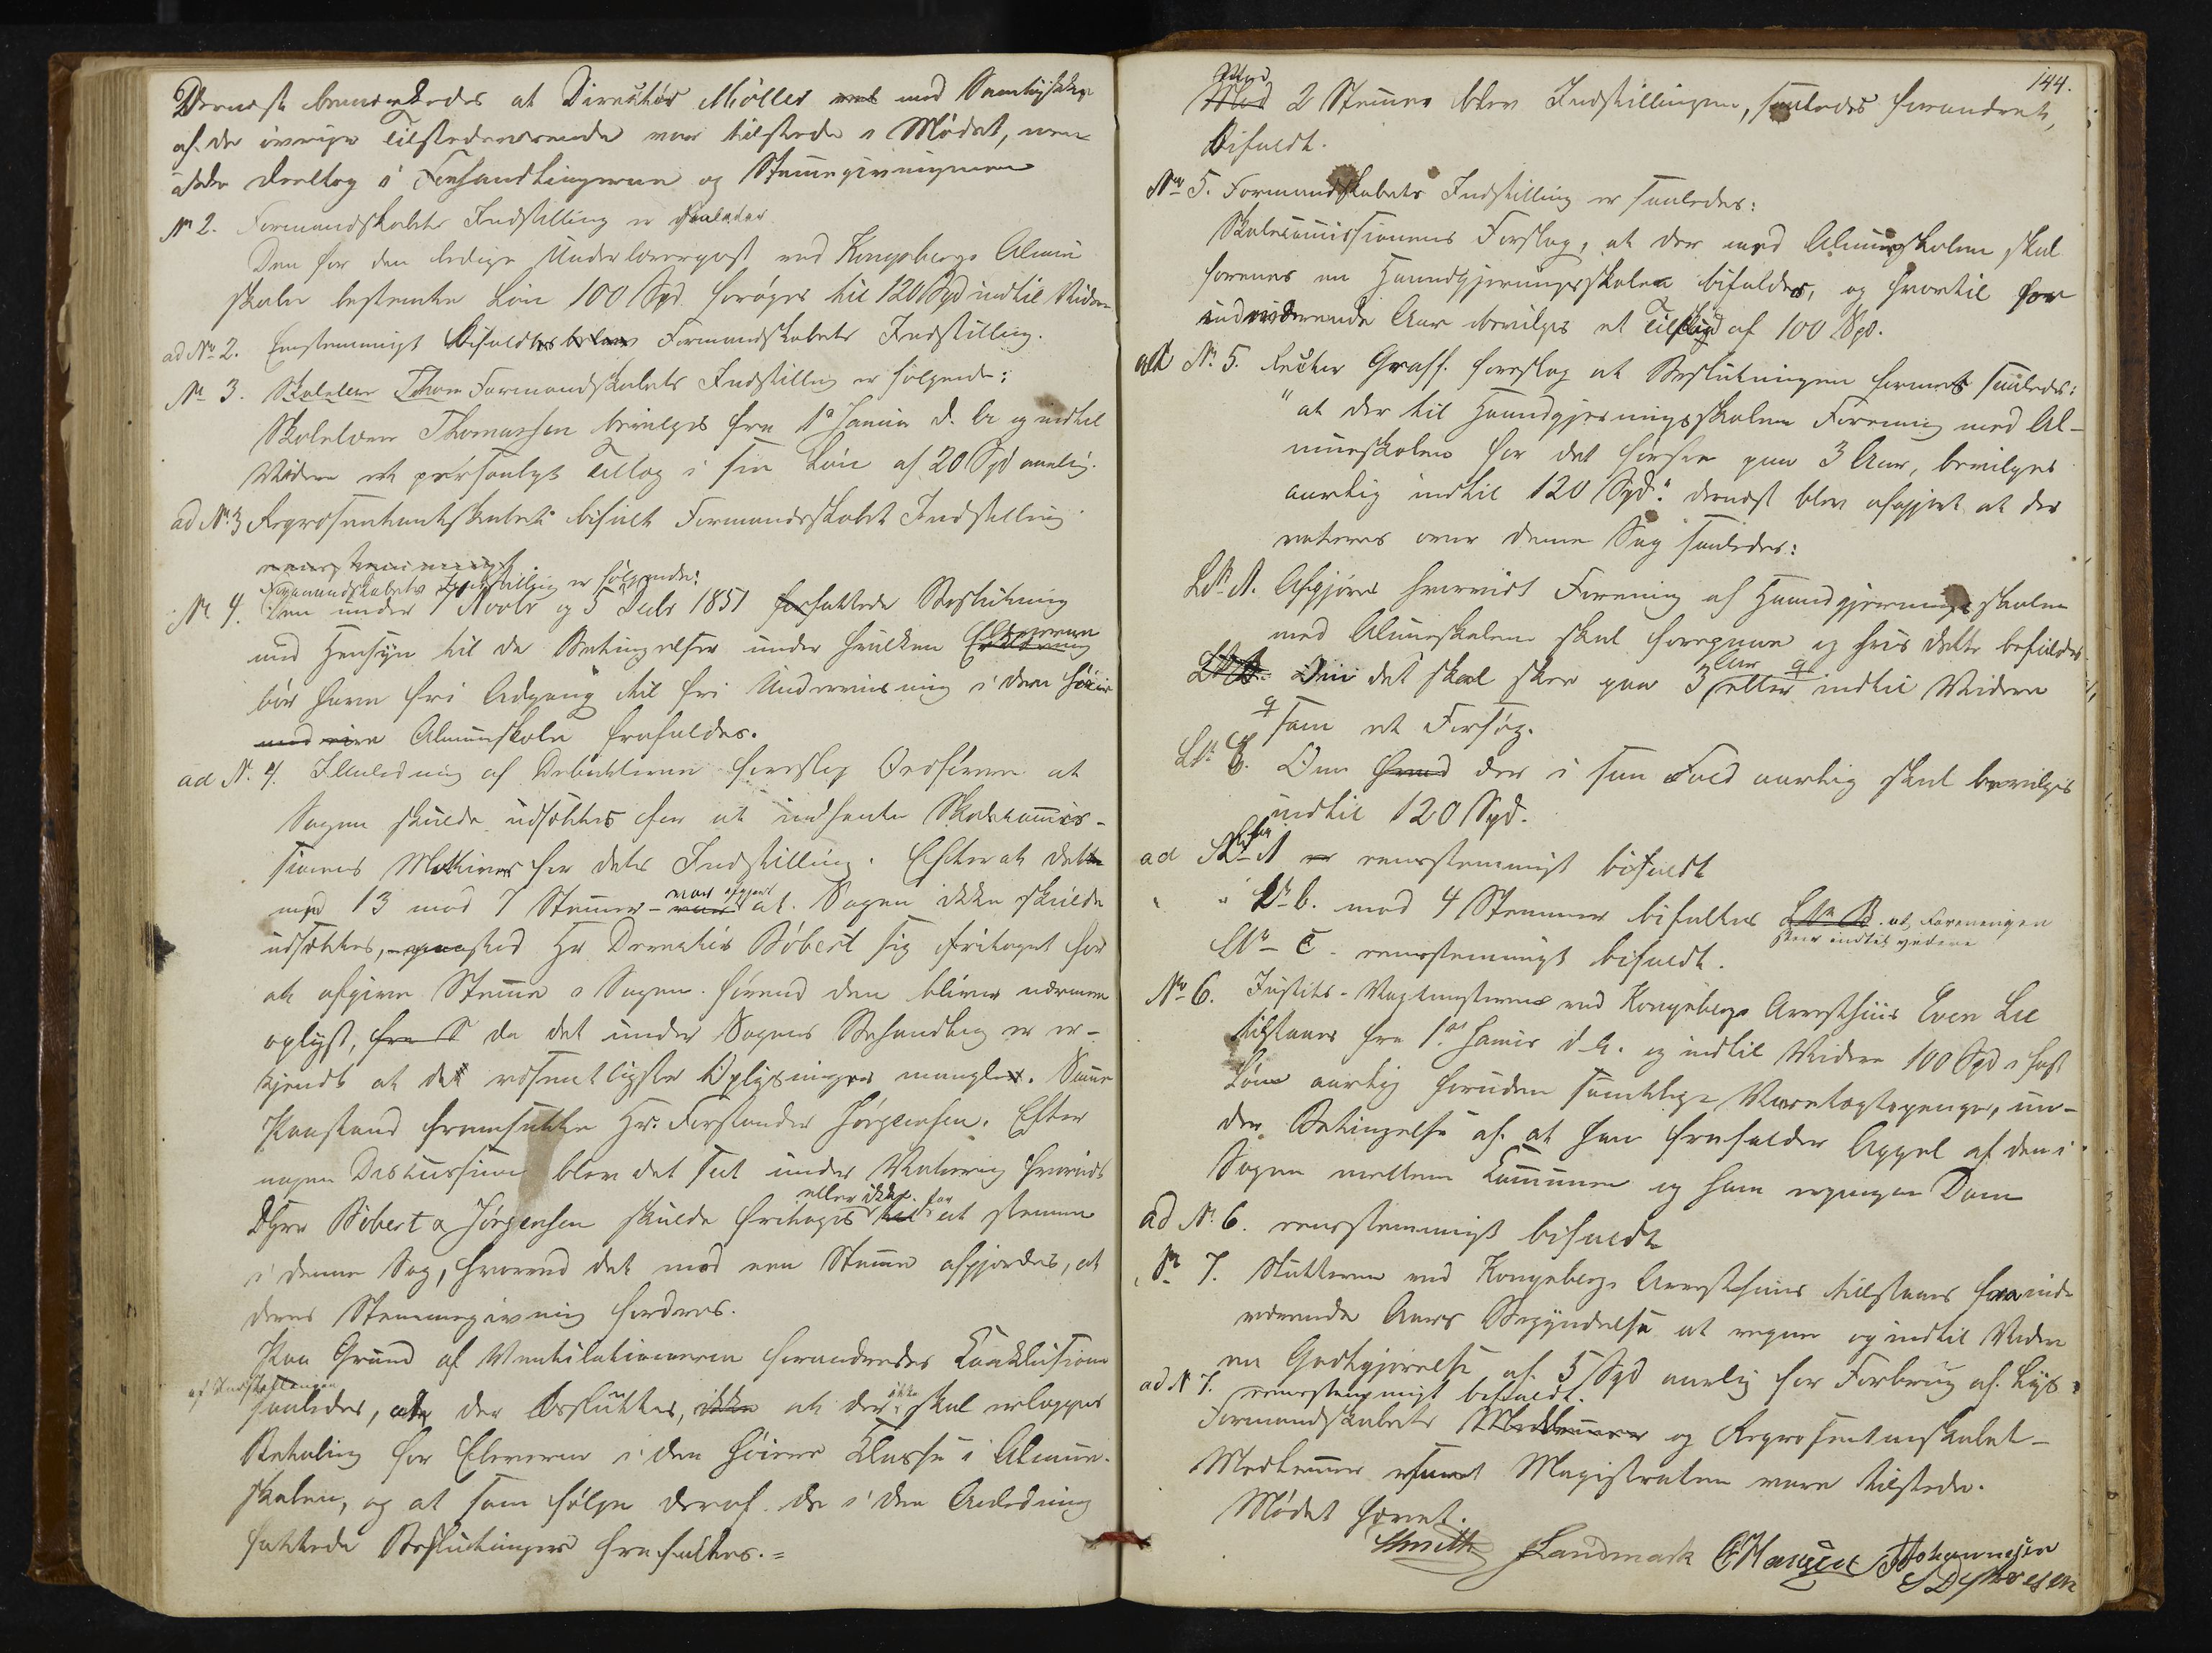 Dernæst bemærkedes at Directør Møller med Samtykke
af de øvrige Tilstedeværende var tilstede i Mødet, uden
at deeltog i Forhandlingerne og Stemmegivningen
No 2. Formandskabets Indstilling er saaledes
Den for den ledige Underlærerpost ved Kongsbergs Almue
skole bestemte Løn 100 Spd. forøges til 120 Spd indtil Videre
ad No 2. Eenstemmigt bifaldtes blev Formandskabets Indstilling.
No 3. Skolelærer Thom Formandskabets Indstilling er følgende:
Skolelærer Thomassen bevilges fra 1ste Januar d. A. og indtil
Videre et personligt Tillæg i sin Løn af 20 Spd aarlig.
ad No 3 Repræsentantskabet bifalt Formandskabet Indstilling
eenstemmigt
Formandskabets Indstilling er følgende:
No 4. Den under 7 Novbr og 5 Decbr 1851 fattede Beslutning
med Hensyn til de Betingelser under hvilken Eleverne
bør have fri Adgang til fri Underviisning i den høiere
Almueskole frafaldes.
ad No. 4. I Anledning af Debatterne foreslog Ordføreren at
Sagen skulde udsættes for at indhente Skolecommis-
sionens Motiver for dets Indstilling. Efterat dette
med 13 mod 7 Stemmer var afgjort at Sagen ikke skulde
udsættes, Hr Directør Bøbert sig fritaget for
at afgive Stemme i Sagen førend den bliver nærmere
oplyst, da det under Sagens Behandling er er-
kjendt at de væsentligste Oplysninger mangler. Samme
Paastand fremsatte Hr. Forstander Jørgensen. Efter
nogen Discussion blev det sat under Votering hvorvidt
DHrr Bøbert & Jørgensen skulde fritages eller ikke for at stemme
i denne Sag, hvorved det mod een Stemme afgjordes, at
deres Stemmegivning fordres.
Paa Grund af Ventilationerne forandredes Conklusionen
af Indstillingen
saaledes, at der besluttes, ikke at der ikke skal erlægges
Betaling for Eleverne i den høiere Klasse i Almue-
skolen, og at som følge deraf de i den Anledning
fattede Beslutninger frafaldes.=
144.
Mod
Mod 2 Stemmer blev Indstillingen, saaledes forandret,
Bifaldt.
No 5. Formandskabets Indstilling er saaledes:
Skolecommissionens Forslag, at der med Almueskolen skal
forenes en Haandgjerningsskole bifaldes, og hvortil for
indeværende Aar bevilges et Tilskud af 100 Spd.
ad No. 5. Rector Graff. foreslog at Beslutningen formes saaledes:
"at der til Haandgjerningsskolens Forening med Al-
mueskolen for det første paa 3 Aar, bevilges
aarlig indtil 120 Spd." dernæst blev afgjort at der
voteres over denne Sag saaledes:
Ltr A. Afgjøres hvorvidt Forening af Haandgjerningsskolen
med Almueskolen skal foregaae og hvis dette bifaldes
Ltr B. Om det skal skee paa 3 Aar eller indtil Videre
som et Forsøg.
Ltr C. Om der i saa Fald aarlig skal bevilges
indtil 120 Spd.
ad Ltr A eenstemmigt bifaldt
" " Ltr b. mod 4 Stemmer bifaltes Ltr B. at Foreningen
skeer indtil videre
Ltr C. eenstemmigt bifaldt.
No 6. Justits-Vagtmesteren ved Kongsbergs Arresthuus Even Lie
tilstaaes fra 1ste Januar d. A. og indtil Videre 100 Spd i fast
Løn aarlig foruden samtlige Varetægtspenge, un-
der Betingelse af at han frafalder Appel af den i
Sagen mellem Communen og ham ergangen Dom
ad No. 6. eenstemmigt bifaldt
No 7. Slutteren ved Kongsbergs Arresthuus tilstaaes fra inde-
værende Aars Begyndelse at regne og indtil Videre
en Godtgjørelse af 5 Spd aarlig for Forbrug af Lys
ad No 7. eenstemmigt bifaldt.
Formandskabets Medlemmer og Repræsentantskabet-
Medlemmer samt Magistraten vare tilstede.
Mødet hævet.
Smith Landmark CHansen Johannesen